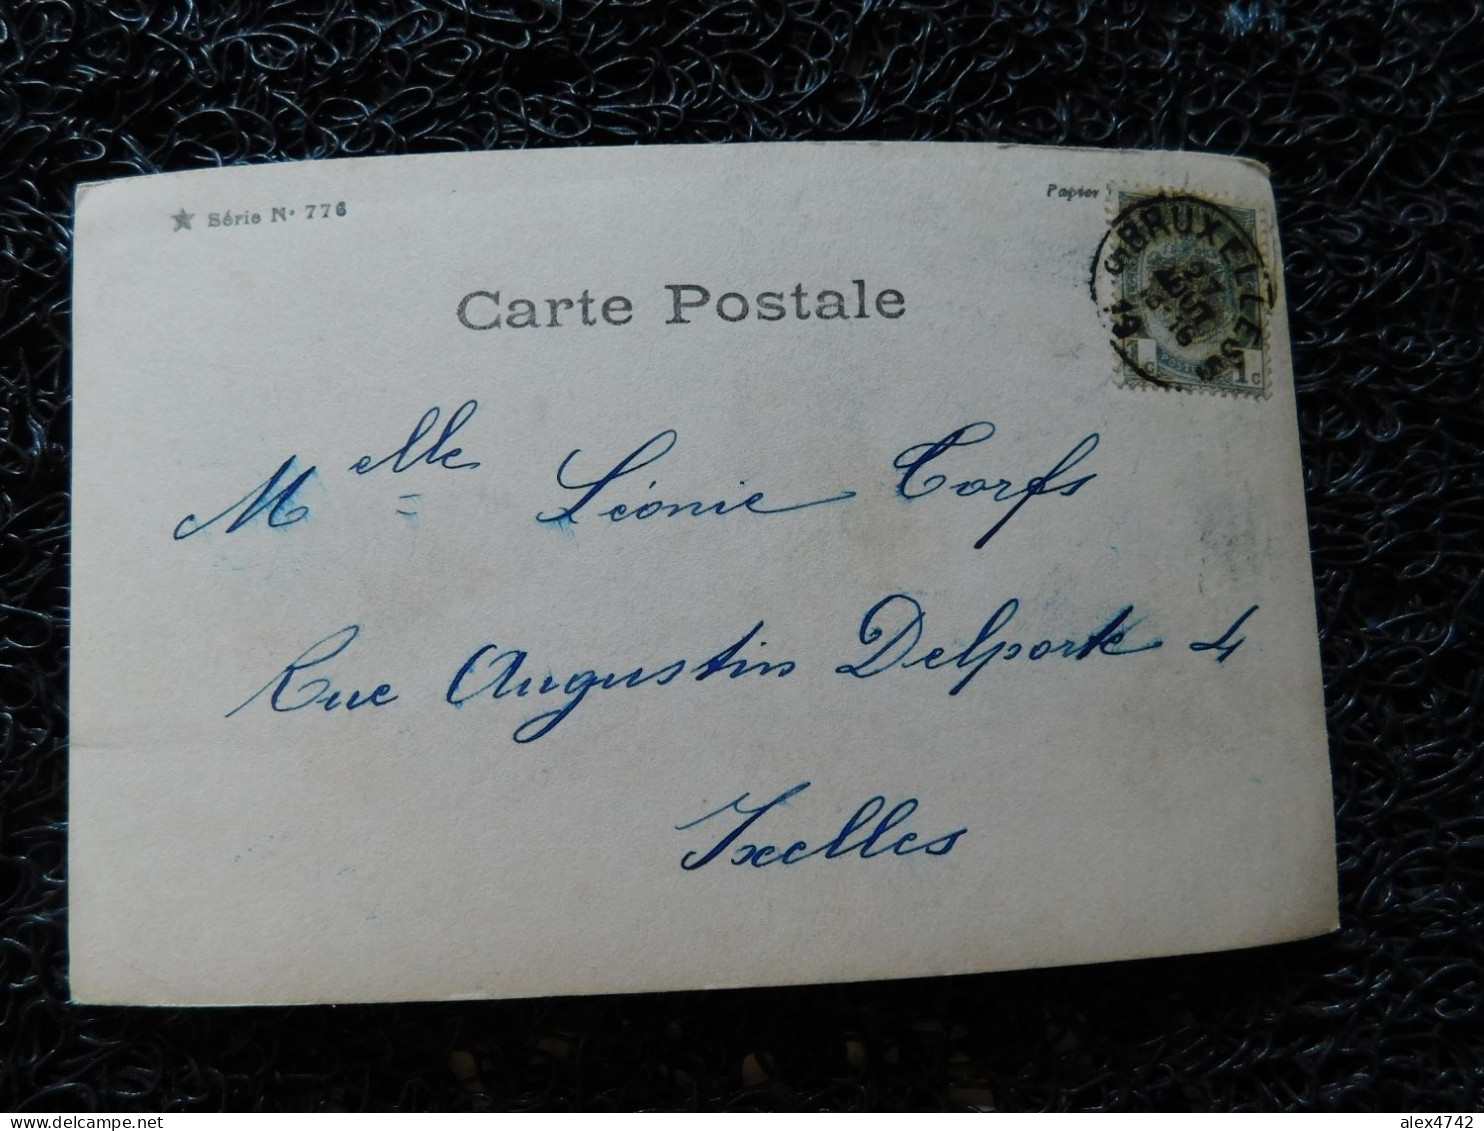 ★ Série N° 776
Papier
Carte Postale
BRUXELLES
27
AOUT
1 C 1 C
POSTES
Melle Léonie Torfs
Rue Augustin Delporte 4
Ixelles
alex4742